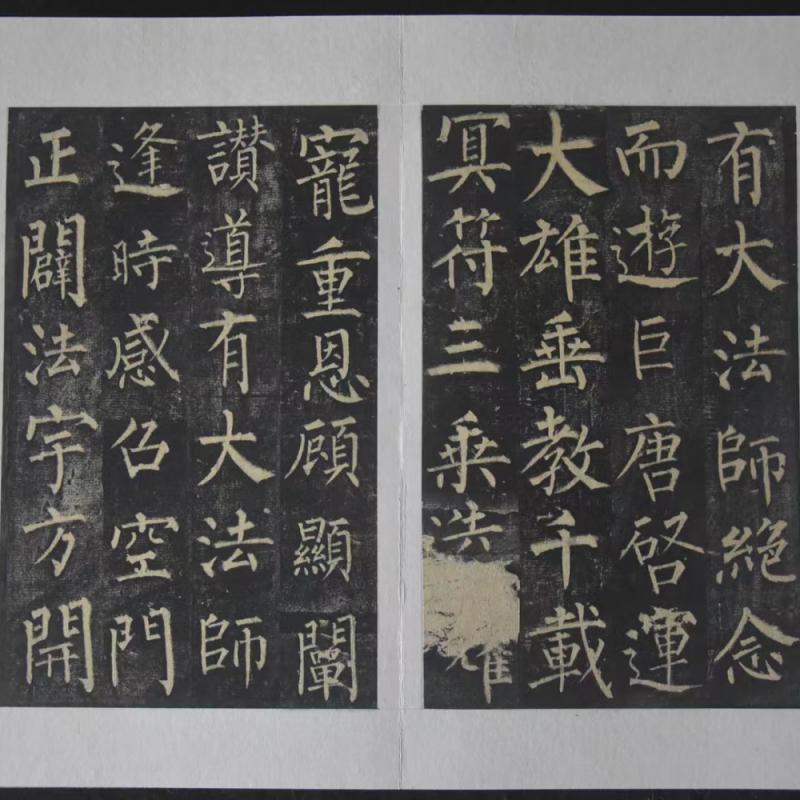 有大法師絕念
而遊巨唐啓運
大雄垂教千載
冥符三乘
寵重恩顧顯闡
讃導有大法師
逢時感召空門
正闢法宇方開